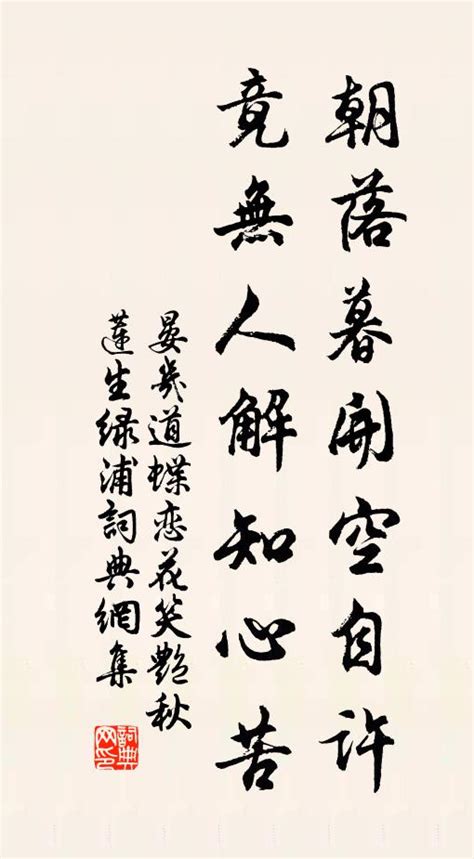 朝落暮開空自許
竟無人解知心苦
晏幾道蝶恋花笑艷秋
蓮生绿浦詞典網集
詞典网印